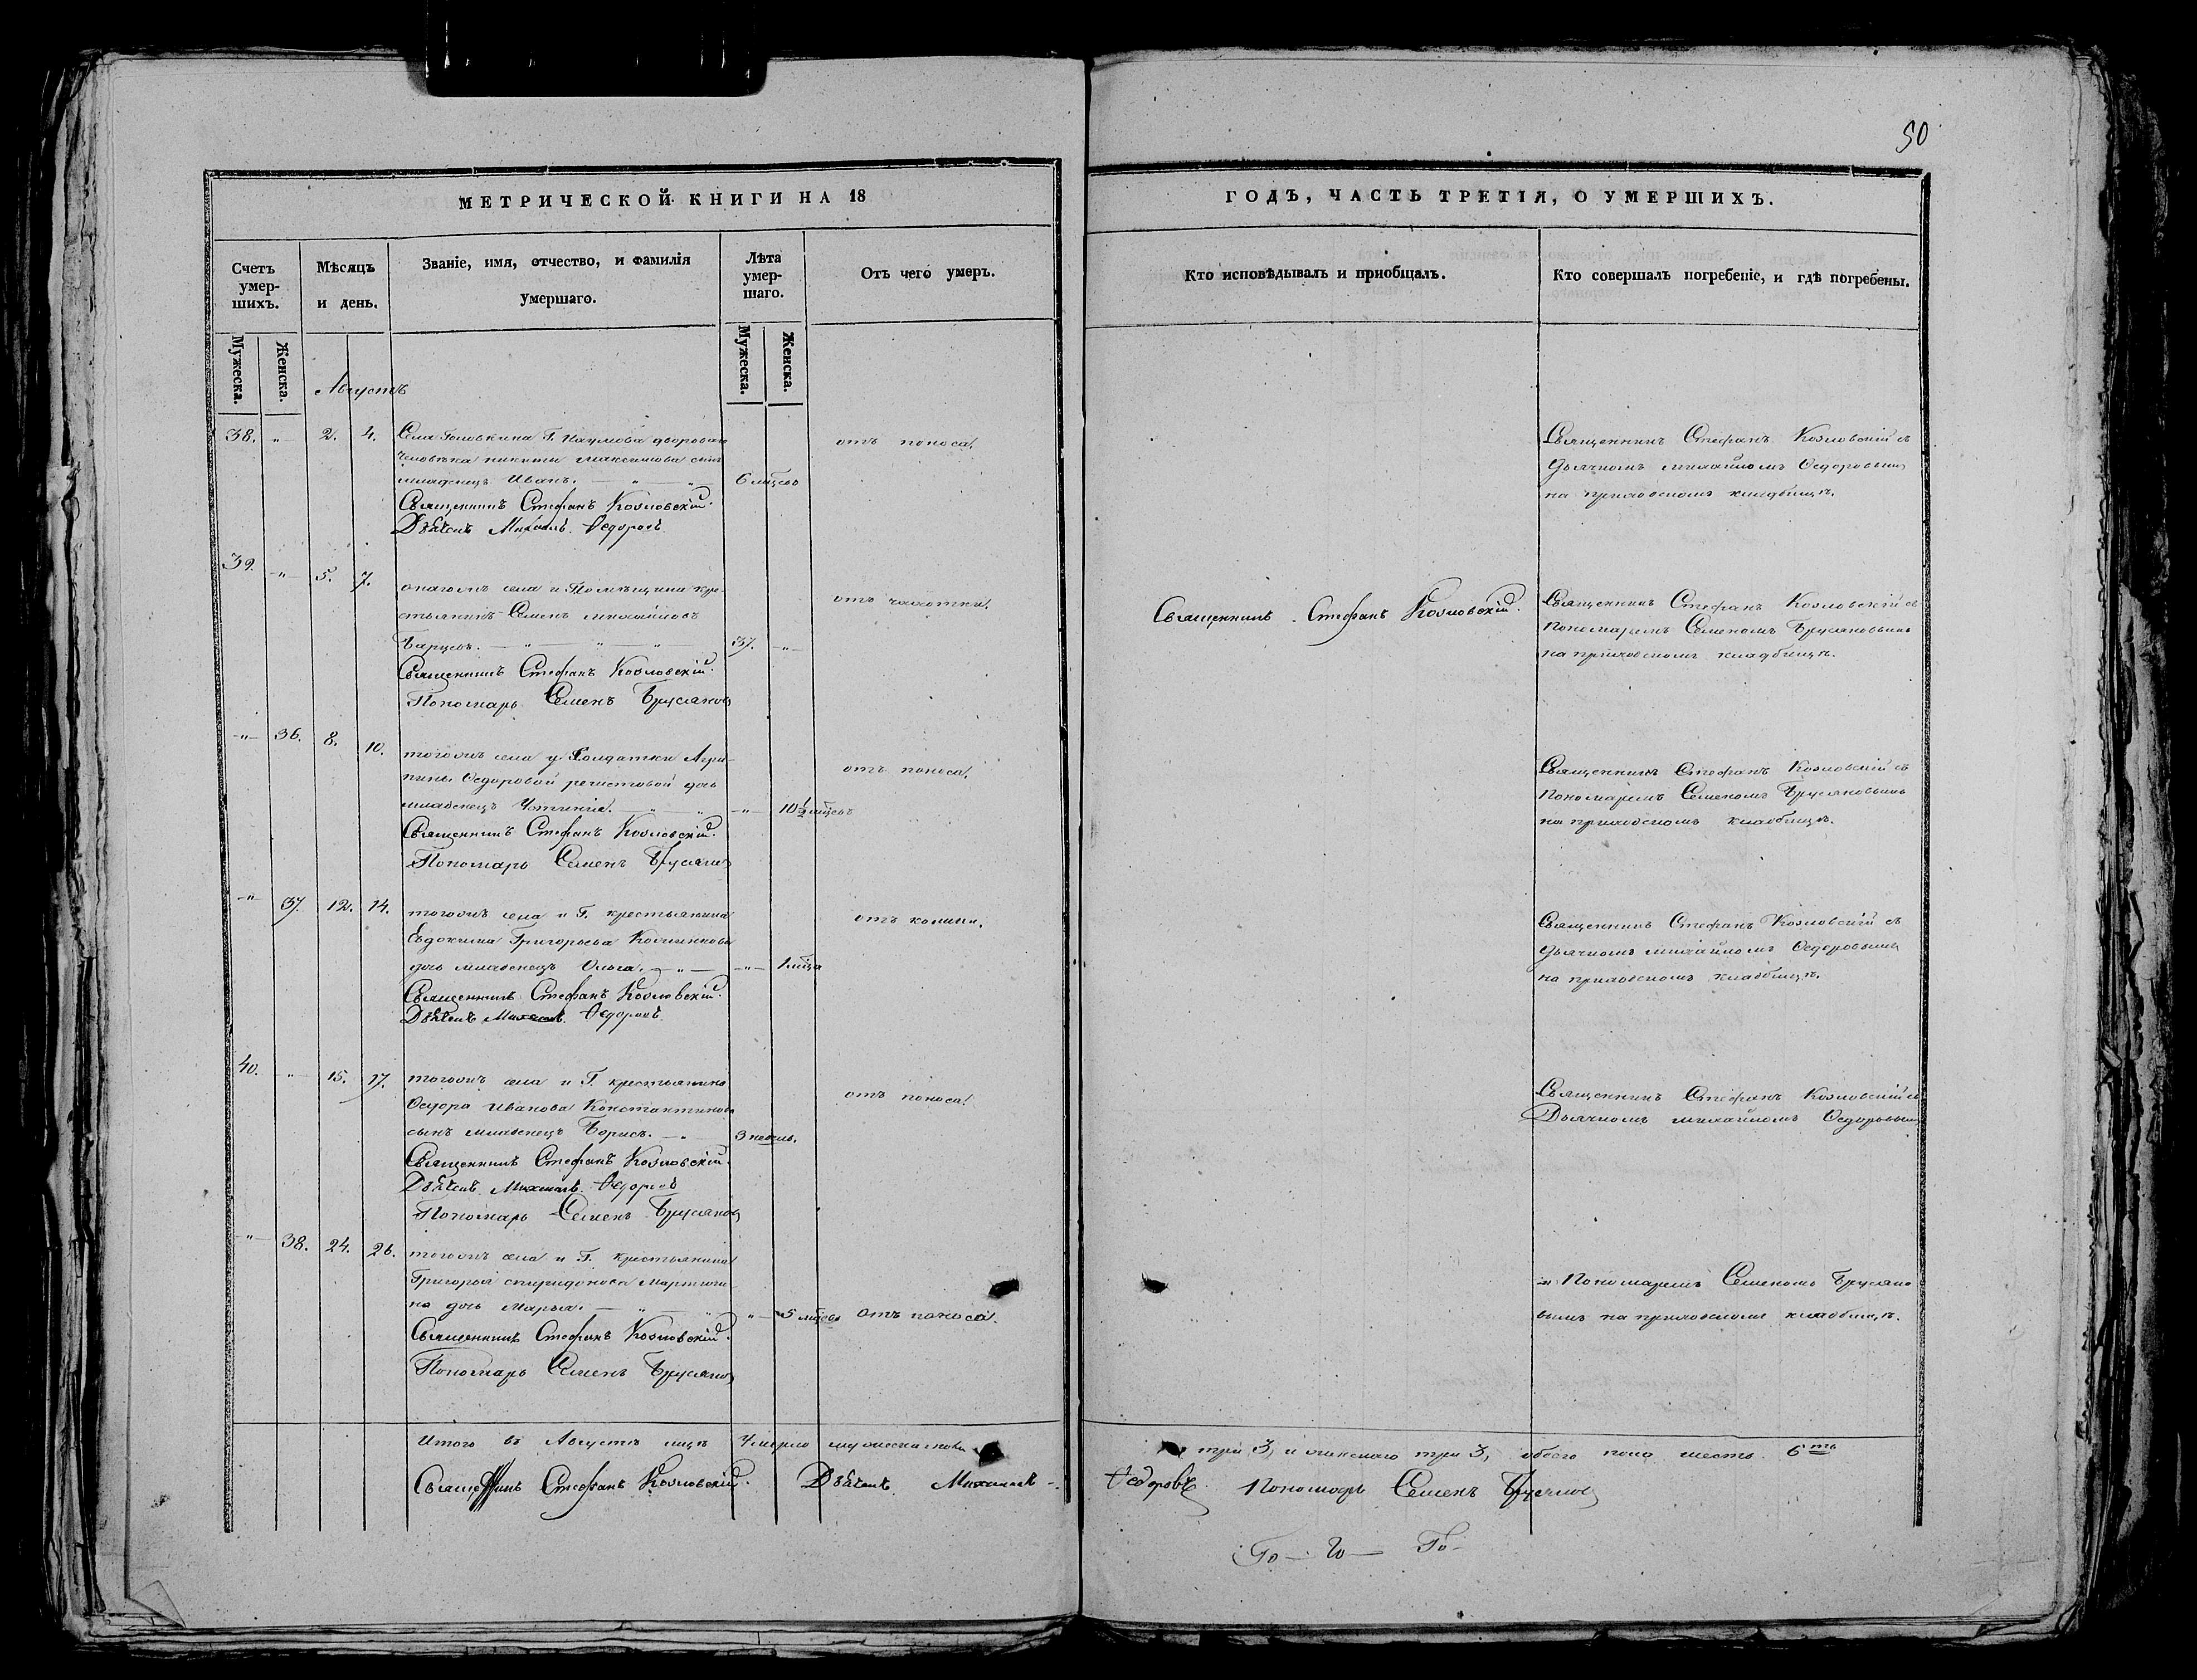 50
МЕТРИЧЕСКОЙ КНИГИ НА 18
ГОДЪ, ЧАСТЬ ТРЕТІЯ, О УМЕРШИХЪ.
Счетъ умер-шихъ.
Мужеска.
Женска.
Мѣсяцъ и день.
Званіе, имя, отчество, и фамилія
умершаго.
Лѣта умер-шаго.
Мужеска.
Женска.
Отъ чего умеръ.
Кто исповѣдывалъ и пріобщалъ.
Кто совершалъ погребеніе, и гдѣ погребены.
Августъ
38. " 2. 4. Села Головкина Г. Наумова дворован
человѣка никиты максимова сынъ
младенецъ Иванъ. 6 мцевъ
отъ поноса.
Священникъ Стефанъ Козловскій.
Дьячекъ Михаилъ Ѳедоровъ
Священникъ Стефанъ Козловскій съ
дьячкомъ михайломъ Ѳедоровымъ
на приходскомъ кладбищѣ.
39. " 5. 7. онагожъ села и Помѣщика кре-
стьянинъ Семенъ михайловъ
Барцевъ. 37. "
отъ чахотки.
Священникъ Стефанъ Козловскій.
Пономарь Семенъ Бруслянов
Священникъ Стефанъ Козловскій.
Священникъ Стефанъ Козловскій съ
Пономаремъ Семеномъ Бруслновымъ
на приходскомъ кладбищѣ.
" 36. 8. 10. тогожъ села у Солдатки Агри-
пины Ѳедоровой дочь
младенецъ " 10½ мцевъ
отъ поноса.
Священникъ Стефанъ Козловскій.
Пономарь Семенъ Бруслянов
Священникъ Стефанъ Козловскій съ
Пономаремъ Семеномъ Брусляновымъ
на приходскомъ кладбищѣ.
" 37. 12. 14. тогожъ села и Г. крестьянина
Евдокима Григорьева
дочь младенецъ Ольга. " 1 мца
отъ
Священникъ Стефанъ Козловскій.
Дьячекъ Михаилъ Ѳедоровъ
Священникъ Стефанъ Козловскій съ
дьячкомъ михайломъ Ѳедоровымъ
на приходскомъ кладбищѣ.
40. " 15. 17. тогожъ села и Г. крестьянина
Ѳедора Иванова Константинова
сынъ младенецъ Борисъ. 3 недѣль.
отъ поноса.
Священникъ Стефанъ Козловскій.
Дьячекъ Михаилъ Ѳедоровъ
Пономарь Семенъ Бруслянов
Священникъ Стефанъ Козловскій съ
Дьячкомъ михайломъ Ѳедоровымъ
" 38. 24. 26. тогожъ села и Г. крестьянина
Григорья спиридонова Мартини
на дочь Марья. " 5 мцевъ отъ поноса.
Священникъ Стефанъ Козловскій.
Пономарь Семенъ Бруслянов
и Пономаремъ Семеномъ Бруслно
вымъ на приходскомъ кладбищѣ.
Итого въ Августѣ мцѣ Умерло мужеска пола три 3, и женскаго три 3, обоего пола шесть 6ть
Священникъ Стефанъ Козловскій. Дьячекъ Михаилъ Ѳедоровъ Пономарь Семенъ Бруслянов